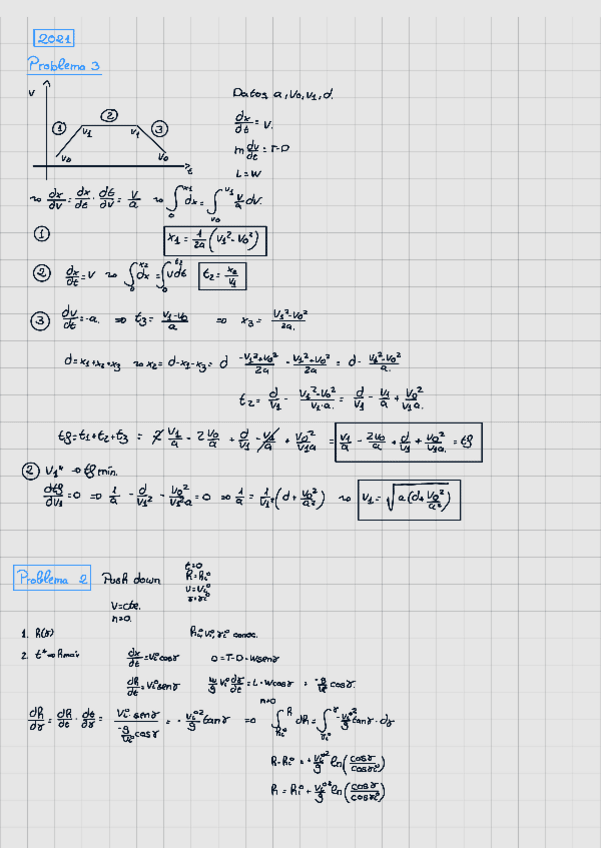 2021
Problema 3
v
① ② ③
v₁ v₁
v₀ v₀
t
Datos a, v₀, v₁, d.
dx/dt = v.
m dv/dt = T-D
L=W
~> dx/dv = dx/dt · dt/dv = v/a ~> ∫₀^x₁ dx = ∫_v₀^v₁ v/a dv.
① x₁ = 1/2a (v₁² - v₀²)
② dx/dt = v ~> ∫₀^x₂ dx = ∫₀^t₂ v dt t₂ = x₂/v₁
③ dv/dt = -a. => t₃ = v₁-v₀/a => x₃ = v₁²-v₀²/2a.
d = x₁+x₂+x₃ ~> x₂ = d-x₁-x₃ = d -v₁²+v₀²/2a -v₁²+v₀²/2a = d - v₁²-v₀²/a.
t₂ = d/v₁ - v₁²-v₀²/v₁·a. = d/v₁ - v₁/a + v₀²/v₁a.
tf = t₁+t₂+t₃ = 2 v₁/a - 2v₀/a + d/v₁ - v₁/a + v₀²/v₁a = v₁/a - 2v₀/a + d/v₁ + v₀²/v₁a. = tf
② v₁* -> tf min.
dtf/dv₁ = 0 => 1/a - d/v₁² - v₀²/v₁²a = 0 => 1/a = 1/v₁² (d + v₀²/a) ~> v₁ = √a(d+v₀²/a²)
Problema 2 Push down
t=0
h=hᵢ⁰
v=vᵢ⁰
γ=γᵢ⁰
v=cte.
n=0.
1. h(γ) hᵢ⁰, vᵢ⁰, γᵢ⁰ conoc.
2. t* => hmax
dx/dt = vᵢ⁰cosγ 0=T-D-Wsenγ
dh/dt = vᵢ⁰senγ W/g vᵢ⁰ dγ/dt = L-Wcosγ = -g/vᵢ⁰ cosγ.
n=0
dh/dγ = dh/dt · dt/dγ = vᵢ⁰·senγ / -g/vᵢ⁰ cosγ = - vᵢ⁰²/g tanγ => ∫_hᵢ⁰^h dh = ∫_γᵢ⁰^γ -vᵢ⁰²/g tanγ·dγ
h-hᵢ⁰ = + vᵢ⁰²/g ln(cosγ/cosγᵢ⁰)
h = hᵢ⁰ + vᵢ⁰²/g ln(cosγ/cosγᵢ⁰)